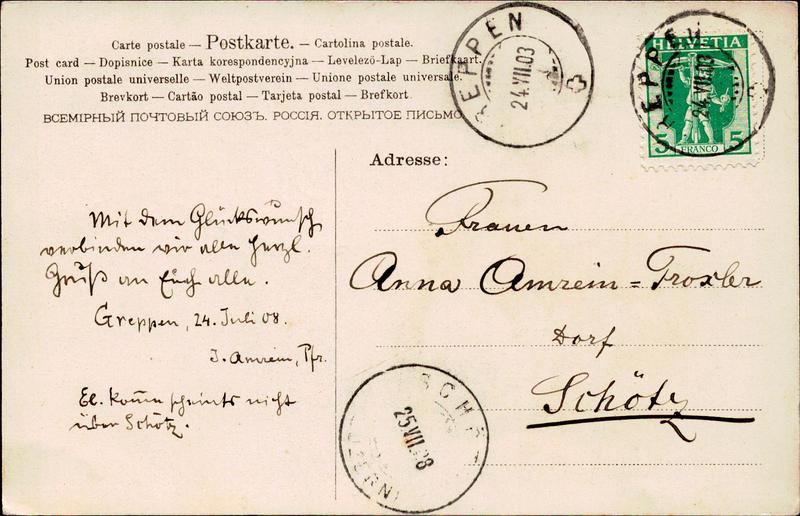 Carte postale — Postkarte. — Cartolina postale.
Post card — Dopisnice — Karta korespondencyjna — Levelező-Lap — Briefkaart.
Union postale universelle — Weltpostverein — Unione postale universale.
Brevkort — Cartão postal — Tarjeta postal — Brefkort.
ВСЕМІРНЫЙ ПОЧТОВЫЙ СОЮЗЪ. РОССІЯ. ОТКРЫТОЕ ПИСЬМО
REPPEN
24.VII.03
REPPEN
24.VII.03
HELVETIA
5 FRANCO 5
Adresse:
Mit dem Glückswunsch
verbinden wir alle herzl.
Gruß an Euch alle.
Greppen, 24. Juli 08.
J. Amrein, Pfr.
kom̄e scheints nicht
über Schötz.
Frauen
Anna Amrein=Troxler
Dorf
Schötz
SCHÖT
25.VII.08